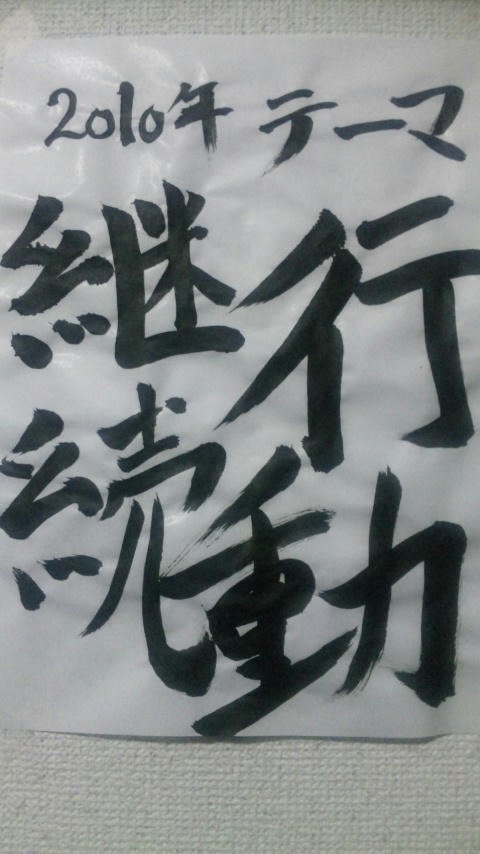 2010年 テーマ
行動
継続